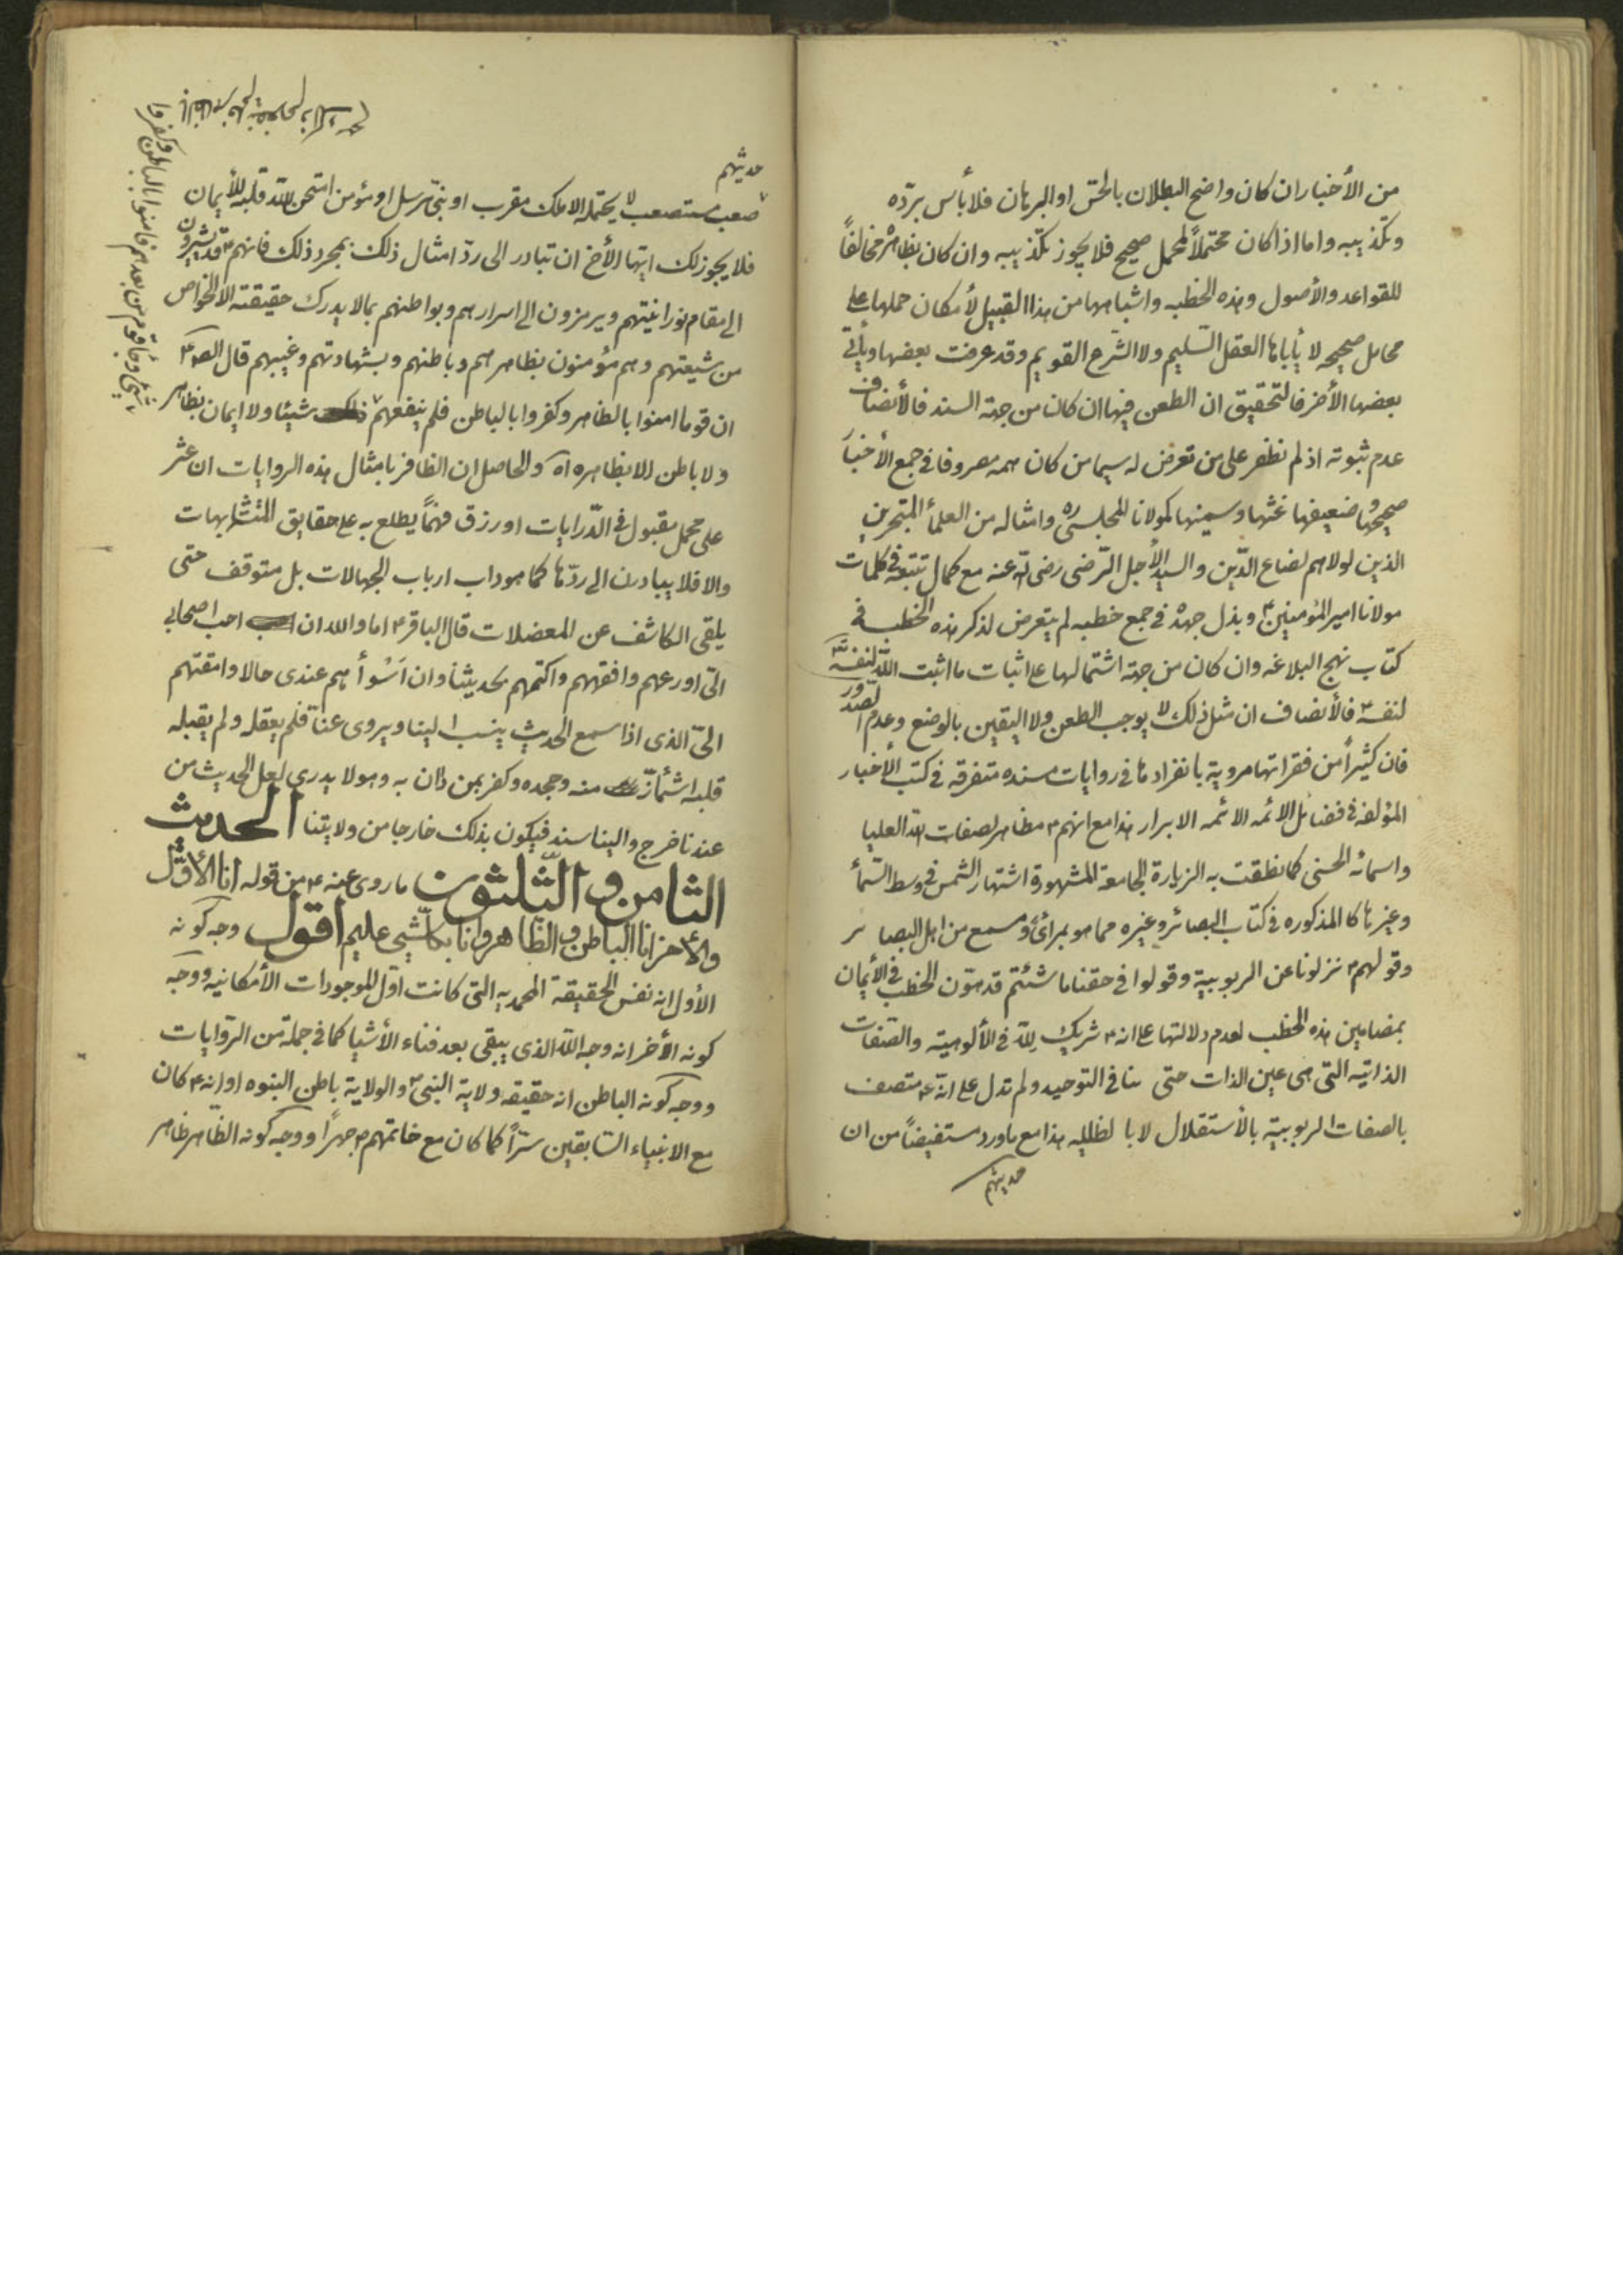 من الأخبار ان كان واضح البطلان بالحس او البرهان فلا بأس بردّه
وتكذيبه واما اذا كان محتملاً لمحمل صحيح فلا يجوز تكذيبه وان كان بظاهره مخالفاً
للقواعد والأصول وهذه الخطبه واشباهها من هذا القبيل لأمكان حملها على
محامل صحيحه لا يأباها العقل السّليم ولا الشّرع القويم وقد عرفت بعضها ويأتى
بعضها الأخر فالتحقيق ان الطعن فيها ان كان من جهة السند فالأنصاف
عدم ثبوته اذ لم نظفر على من تعرض له سيما من كان همه مصروفا فى جمع الأخبار
صحيحها وضعيفها غثها وسمينها كمولانا المجلسى ره وامثاله من العلمأ المتبحرين
الذين لولاهم لضاع الدّين والسيد الأجل الرّضى رضى الله عنه مع كمال تتبعه فى كلمات
مولانا امير المؤمنين ع وبذل جهده فى جمع خطبه لم يتعرض لذكر هذه الخطبه فى
كتاب نهج البلاغه وان كان من جهة اشتمالها على اثبات ما اثبت الله لنفسه
لنفسه فالأنصاف ان مثل ذلك لا يوجب الطعن ولا اليقين بالوضع وعدم الصّدور
فان كثيراً من فقراتها مروية بانفرادها فى روايات مسنده متفرقه فى كتب الأخبار
المؤلفه فى فضائل الائمه الائمه الابرار هذا مع انهم ع مظاهر لصفات الله العليا
واسمائه الحسنى كما نطقت به الزيارة الجامعة المشهورة اشتهار الشّمس فى وسط السّمأ
وغيرها كالمذكوره فى كتاب البصائر وغيره مما هو بمرأى ومسمع من اهل البصاير
وقولهم ع نزلونا عن الربوبية وقولوا فى حقنا ما شئتم قد هوّن الخطب فى الأيمان
بمضامين هذه الخطب لعدم دلالتها على انه ع شريك لله فى الألوهية والصّفات
الذاتيه التى هى عين الذات حتى ينافى التوحيد ولم تدل على انّه ع متصف
بالصفات الربوبية بالأستقلال لا بالظليه هذا مع ما ورد مستفيضاً من ان
حديثهم
حديثهم
صعب مستصعب لا يحتمله الا ملك مقرب او نبىّ مرسل او مؤمن امتحن الله قلبه للأيمان
فلا يجوز لك ايّها الأخ ان تبادر الى ردّ امثال ذلك بمجرد ذلك فانهم ع قد يشيرون
الى مقام نورانيتهم ويرمزون الى اسرارهم وبواطنهم بما لا يدرك حقيقته الا الخواص
من شيعتهم وهم مؤمنون بظاهرهم وباطنهم وبشهادتهم وغيبهم قال الص ع
ان قوما امنوا بالظاهر وكفروا بالباطن فلم ينفعهم ذلك شيئا ولا ايمان بظاهر
وجاء قوم من بعدهم فامنوا بالباطن وكفروا
ولا باطن الا بظاهره اه والحاصل ان الظافر بامثال هذه الروايات ان عثر
على محمل مقبول فى الدّرايات او رزق فهماً يطلع به على حقايق المتشابهات
والا فلا يبادرن الى ردّها كما هو داب ارباب الجهالات بل متوقف حتى
يلقى الكاشف عن المعضلات قال الباقر ع اما والله ان احب اصحابى
الىّ اورعهم وافقههم واكتمهم لحديثنا وان اسْوأهم عندى حالا وامقتهم
الىّ الذى اذا سمع الحديث ينسب الينا ويروى عنّا فلم يعقله ولم يقبله
قلبه اشمأزّ منه وجحده وكفر بمن دان به وهو لا يدرى لعل الحديث من
عندنا خرج والينا سند فيكون بذلك خارجا من ولايتنا الحديث
الثامن والثّلثون ما روى عنه ع من قوله انا الأوّل
والأخر انا الباطن والظّاهر وانا بكلّ شيئ عليم اقول وجه كونه
الأول انه نفس الحقيقة المحمديه التى كانت اوّل الموجودات الأمكانيه ووجه
كونه الأخر انه وجه الله الذى يبقى بعد فناء الأشيا كما فى جملة من الرّوايات
ووجه كونه الباطن انه حقيقه ولاية النبى ص والولاية باطن النبوه او انه ع كان
مع الانبياء السّابقين سرّاً كما كان مع خاتمهم ص جهراً ووجه كونه الظّاهر ظاهر